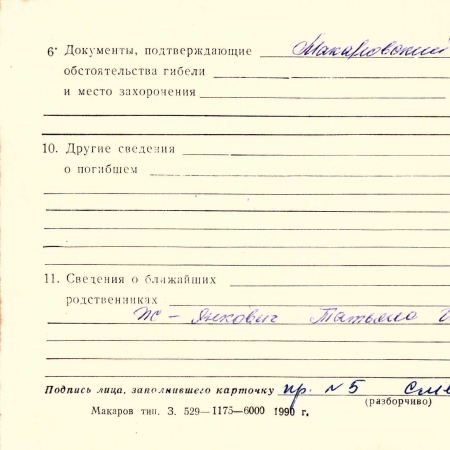 6· Документы, подтверждающие Макаровский
обстоятельства гибели
и место захорочения
10. Другие сведения
о погибшем
11. Сведения о ближайших
родственниках
Ж - Янкович Татьяна
Подпись лица, заполнившего карточку пр. N5
(разборчиво)
Макаров тип. З. 529—1175—6000 1990 г.